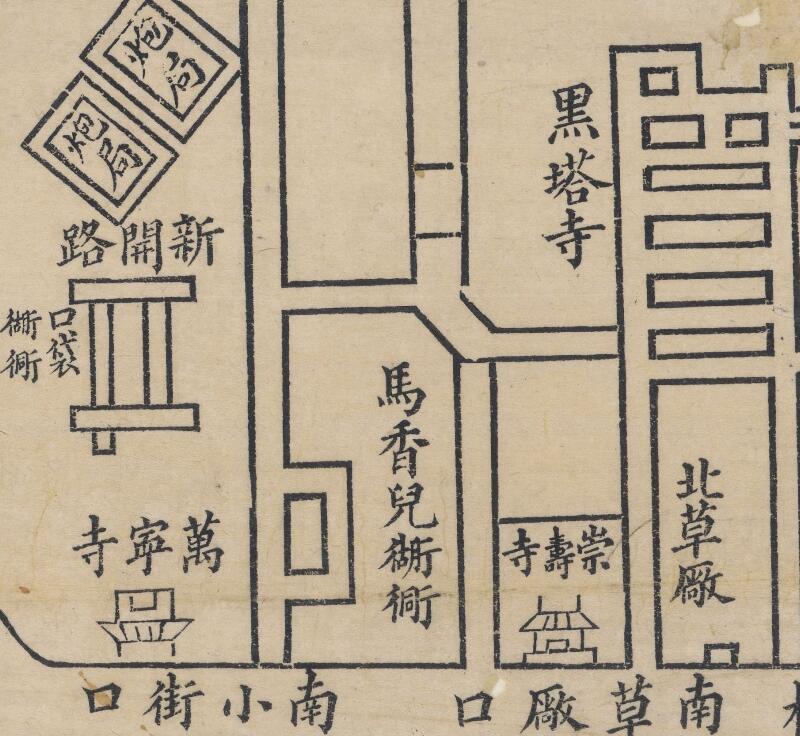 炮局
炮局
新開路
口袋
衚衕
萬寧寺
南小街口
馬香兒衚衕
黑塔寺
崇壽寺
北草厰
南草厰口